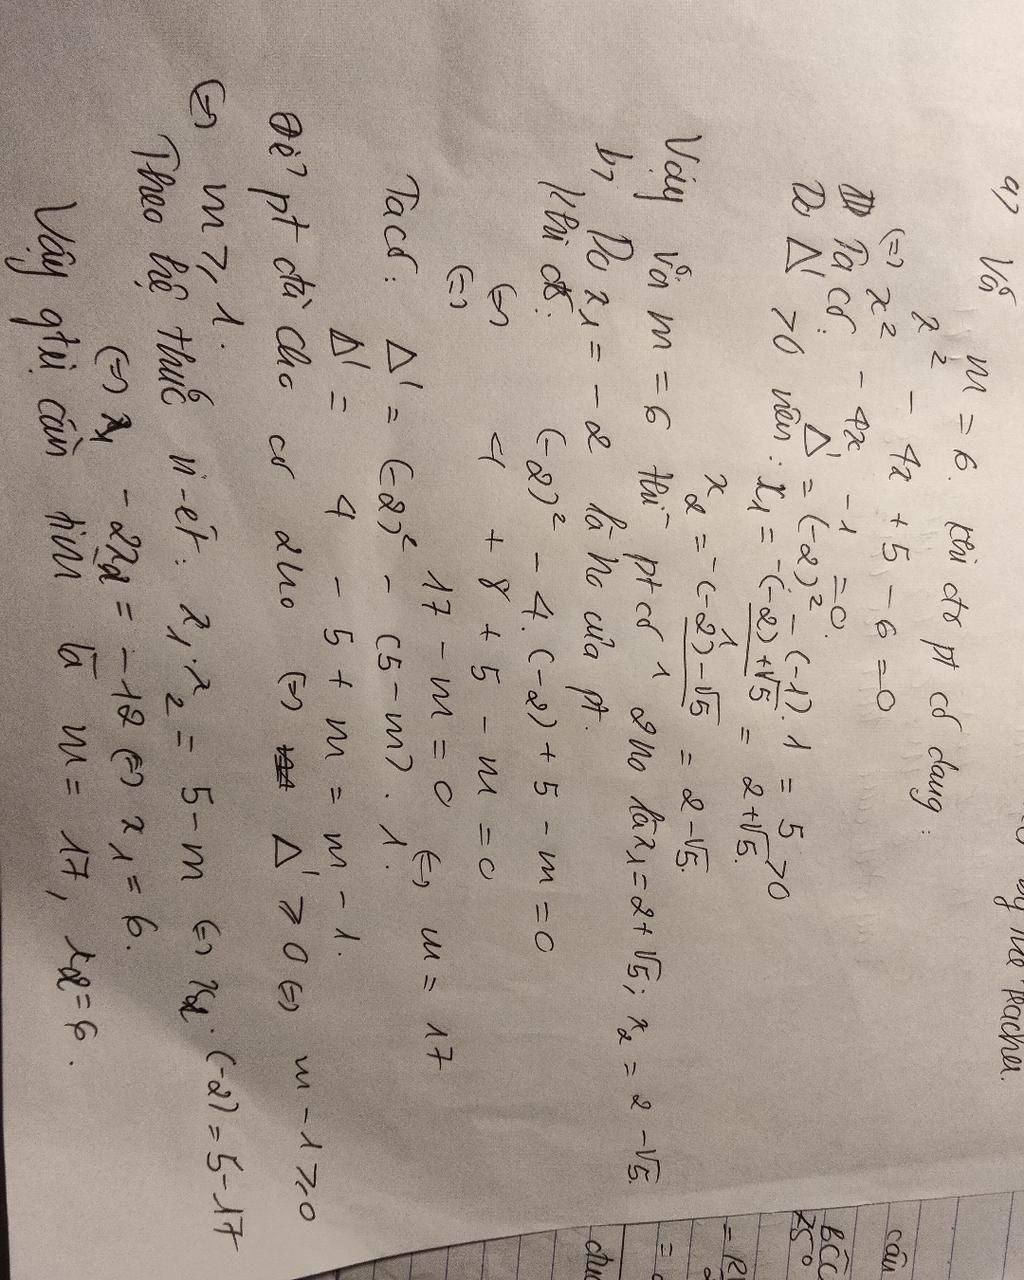 by the teacher.
a) Với m = 6. Khi đó pt có dạng:
x² - 4x + 5 - 6 = 0
(=) x² - 4x - 1 = 0.
Ta có: Δ' = (-2)² - (-1).1 = 5 > 0
Do Δ' > 0 nên: x₁ = -(-2)+√5 / 1 = 2+√5.
x₂ = -(-2)-√5 / 1 = 2-√5.
Vậy với m = 6 thì pt có 2no là x₁ = 2+√5; x₂ = 2-√5.
b, Do x₁ = -2 là no của pt.
Khi đó: (-2)² - 4.(-2) + 5 - m = 0
(=) 4 + 8 + 5 - m = 0
(=) 17 - m = 0 (=) m = 17
Ta có: Δ' = (-2)² - (5-m).1.
Δ' = 4 - 5 + m = m - 1.
Để pt đã cho có 2no (=) Δ' ⩾ 0 (=) m - 1 ⩾ 0
(=) m ⩾ 1.
Theo hệ thức vi-ét: x₁.x₂ = 5-m (=) x₂.(-2) = 5-17
(=) -2x₂ = -12 (=) x₁ = 6.
Vậy gtrị cần tìm là m = 17, x₂ = 6.
câu
BCC
250